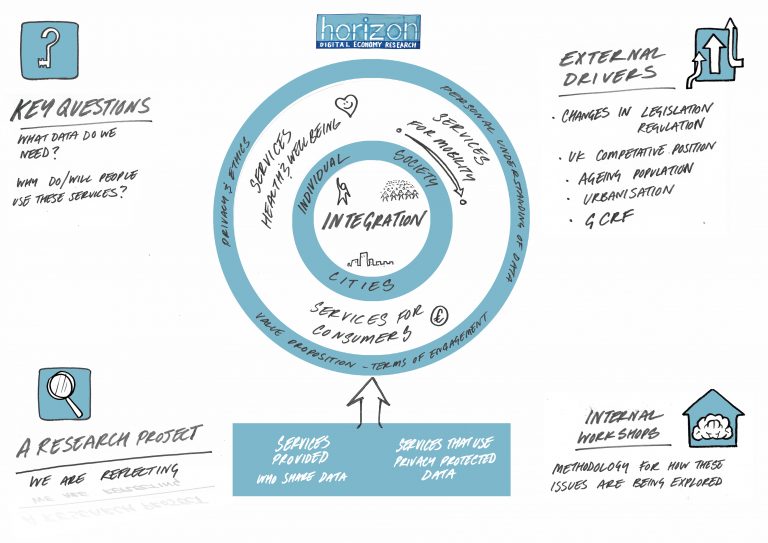 horizon
DIGITAL ECONOMY RESEARCH
KEY QUESTIONS
WHAT DATA DO WE
NEED?
WHY DO/WILL PEOPLE
USE THESE SERVICES?
EXTERNAL
DRIVERS
· CHANGES IN LEGISLATION
REGULATION
· UK COMPETATIVE POSITION
· AGEING POPULATION
· URBANISATION
· GCRF
PRIVACY & ETHICS
PERSONAL UNDERSTANDING OF DATA
VALUE PROPOSITION - TERMS OF ENGAGEMENT
SERVICES
HEALTH & WELLBEING
SERVICES
FOR MOBILITY
INDIVIDUAL
SOCIETY
INTEGRATION
CITIES
SERVICES FOR
CONSUMERS
£
A RESEARCH PROJECT
WE ARE REFLECTING
WE ARE REFLECTING
A RESEARCH PROJECT
SERVICES
PROVIDED
WHO SHARE DATA
SERVICES THAT USE
PRIVACY PROTECTED
DATA
INTERNAL
WORKSHOPS
METHODOLOGY FOR HOW THESE
ISSUES ARE BEING EXPLORED